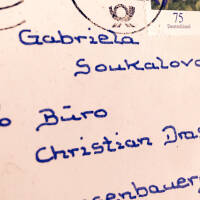 75
Deutschland
Gabriela
Soukalova
Büro
Christian Dras
senbauer